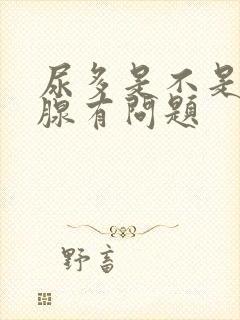 尿多是不是
腺有問題
野畜